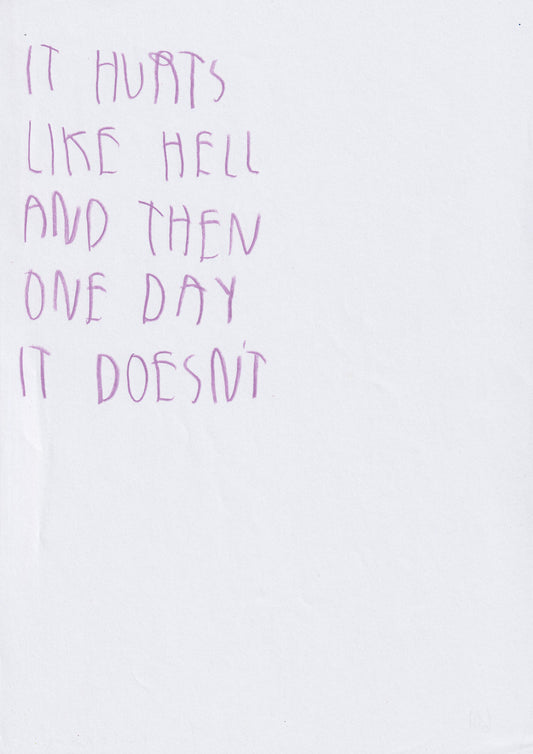 IT HURTS
LIKE HELL
AND THEN
ONE DAY
IT DOESN'T